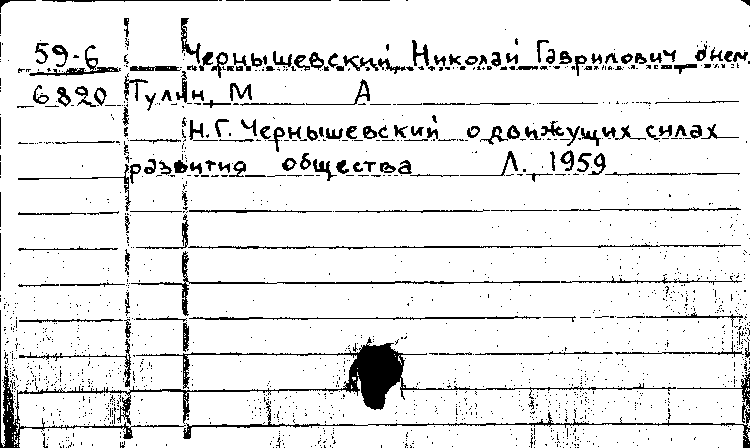 59-6 Чернышевский, Николай Гаврилович, о нем.
6820 Тулин, М А
Н.Г. Чернышевский о движущих силах
развития общества Л., 1959.